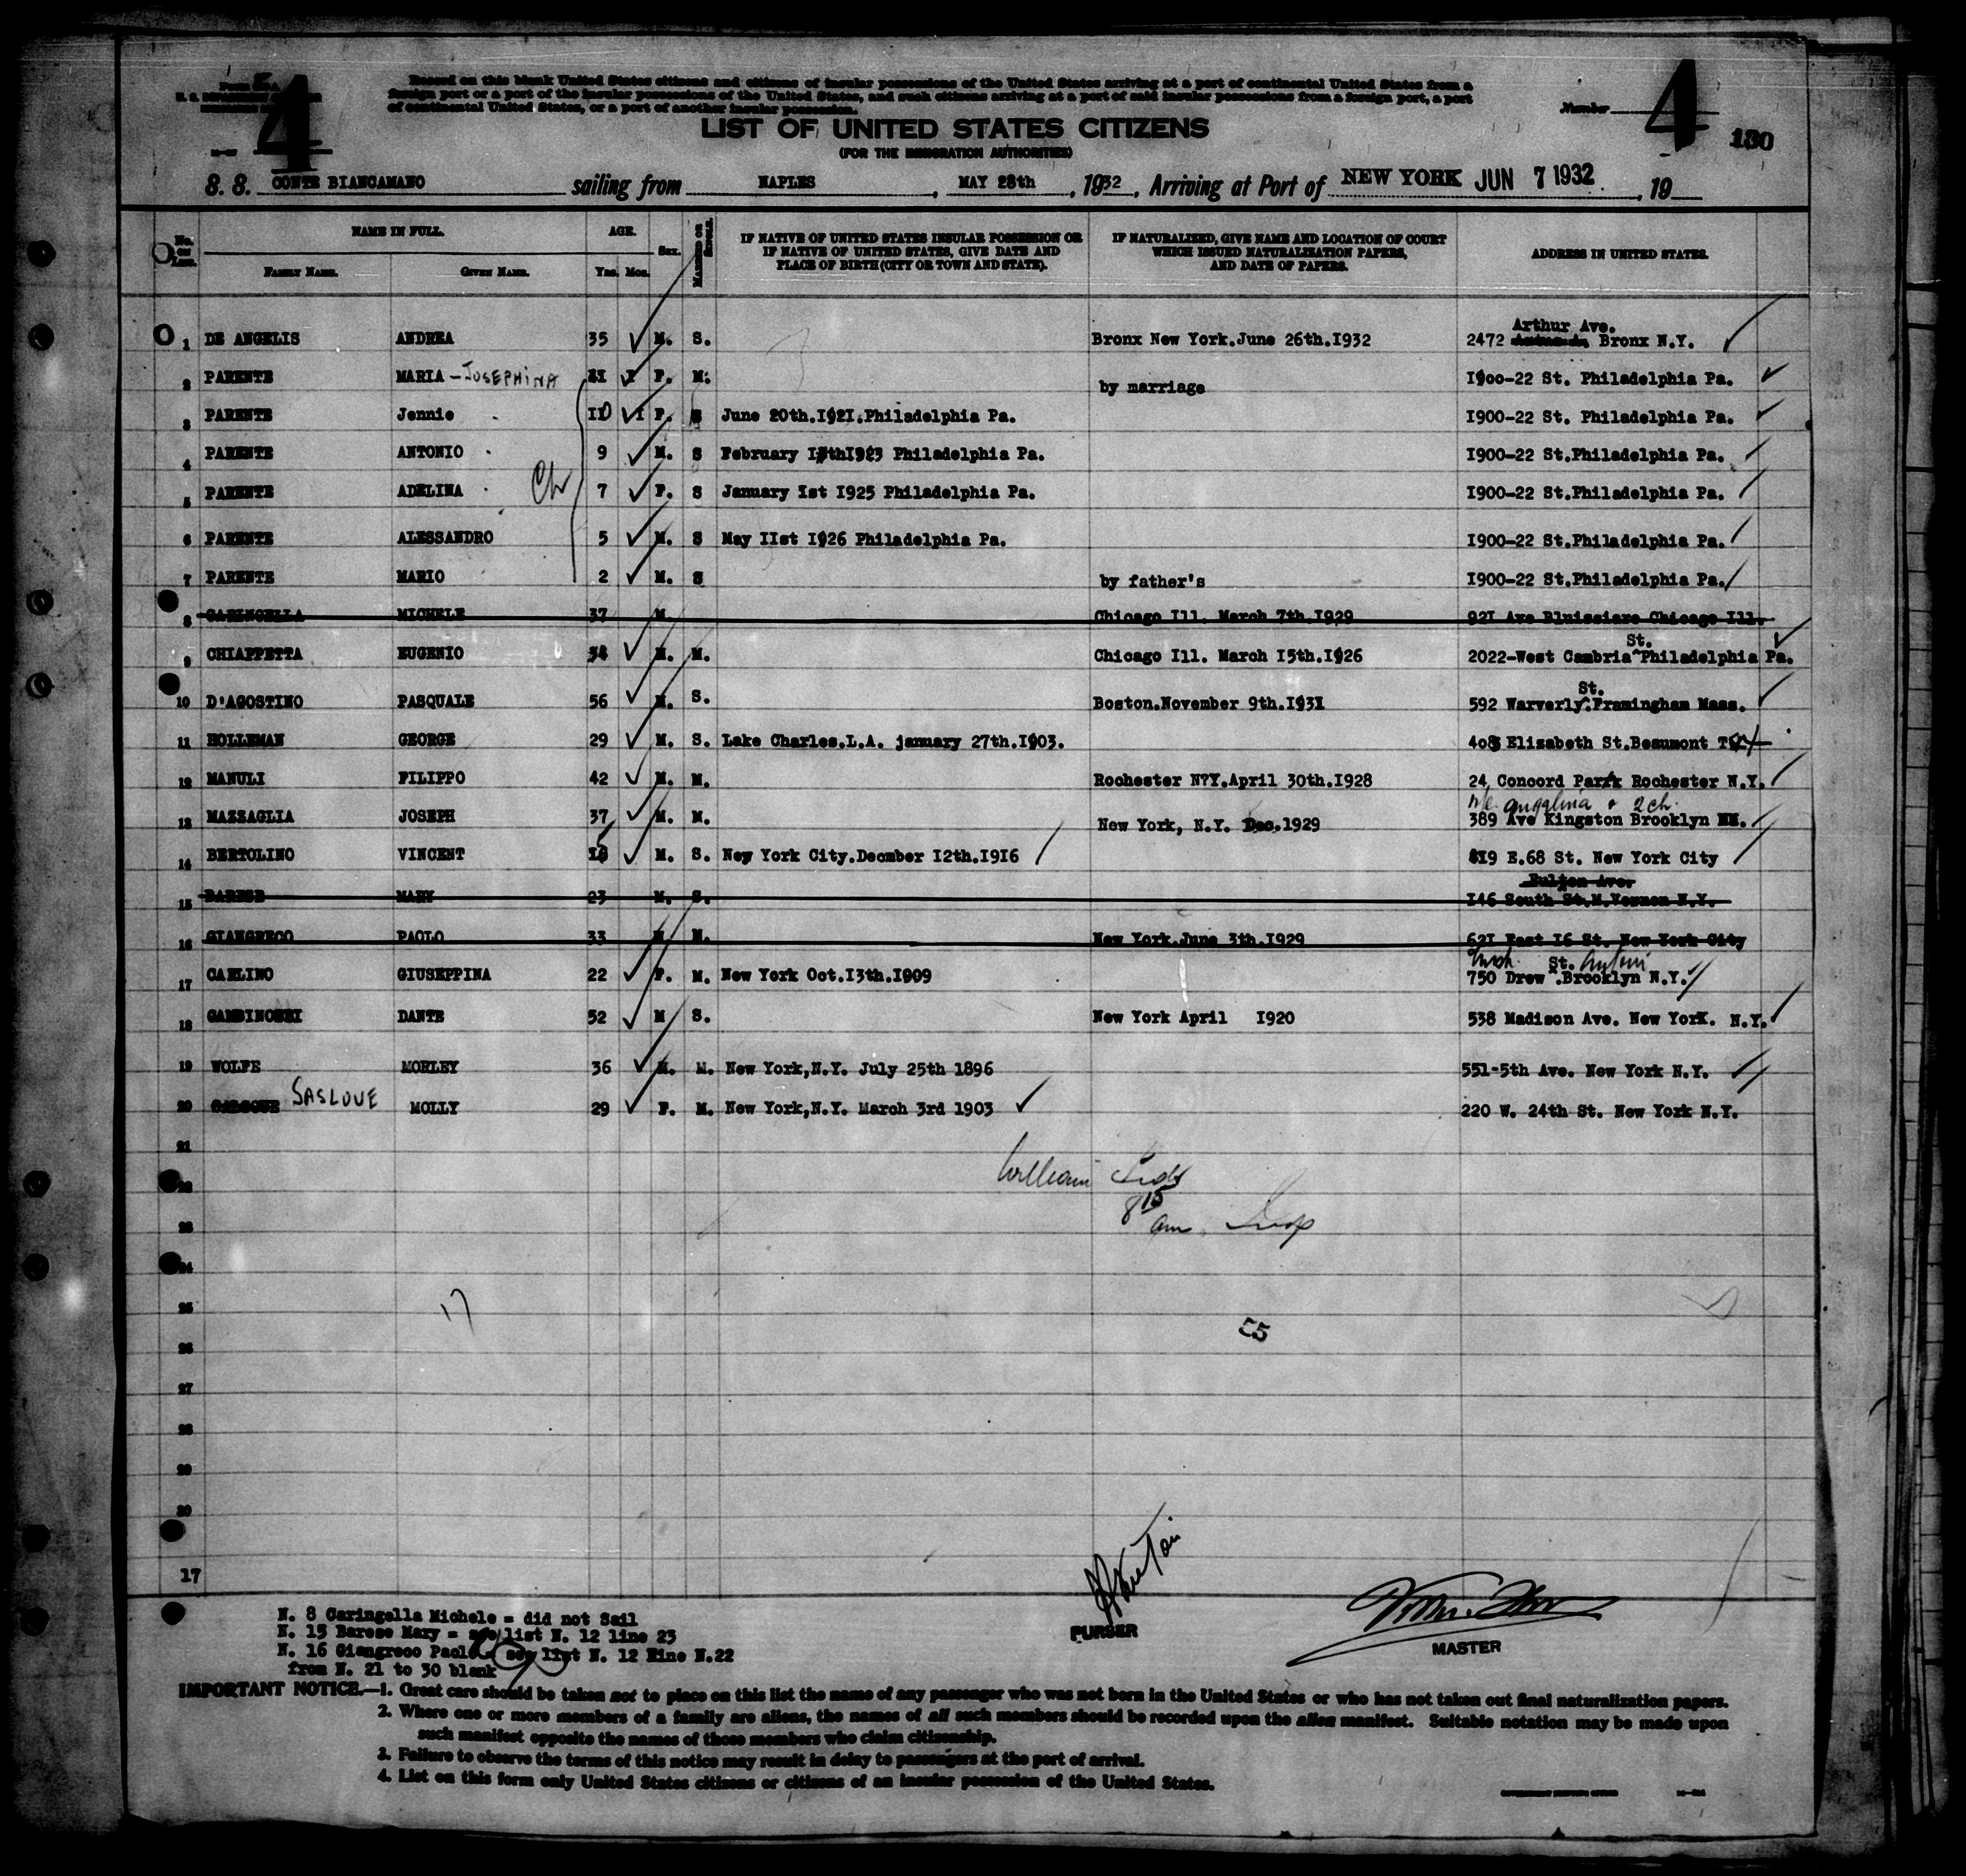 4
Record on this blank United States citizens and citizens of insular possessions of the United States arriving at a port of continental United States from a
foreign port or a port of the insular possessions of the United States, and such citizens arriving at a port of said insular possessions from a foreign port, a port
of continental United States, or a port of another insular possession.
Number 4 130
LIST OF UNITED STATES CITIZENS
(FOR THE IMMIGRATION AUTHORITIES)
S. S. CONTE BIANCAMANO sailing from NAPLES, MAY 28th, 1932, Arriving at Port of NEW YORK JUN 7 1932, 19
No. on List. NAME IN FULL. AGE. Sex. MARRIED OR SINGLE. IF NATIVE OF UNITED STATES INSULAR POSSESSION OR IF NATIVE OF UNITED STATES, GIVE DATE AND PLACE OF BIRTH (CITY OR TOWN AND STATE). IF NATURALIZED, GIVE NAME AND LOCATION OF COURT WHICH ISSUED NATURALIZATION PAPERS, AND DATE OF PAPERS. ADDRESS IN UNITED STATES.
FAMILY NAME. GIVEN NAME. Yrs. Mos.
1 DE ANGELIS ANDREA 35 M. S. Bronx New York.June 26th.I932 2472 Arthur Ave. Bronx N.Y.
2 PARENTE MARIA - JOSEPHINA 31 F. M. by marriage I900-22 St. Philadelphia Pa.
3 PARENTE Jennie 10 F. S June 20th.I92I.Philadelphia Pa. I900-22 St. Philadelphia Pa.
4 PARENTE ANTONIO 9 M. S February thI923 Philadelphia Pa. I900-22 St.Philadelphia Pa.
5 PARENTE ADELINA Ch 7 F. S January Ist I925 Philadelphia Pa. I900-22 St.Philadelphia Pa.
6 PARENTE ALESSANDRO 5 M. S May IIst I926 Philadelphia Pa. I900-22 St.Philadelphia Pa.
7 PARENTE MARIO 2 M. S by father's I900-22 St.Philadelphia Pa.
8 CARINGELLA MICHELE 37 M Chicago Ill. March 7th.I929 92I Ave Bluissiare Chicago Ill.
9 CHIAPPETTA EUGENIO 34 M. M. Chicago Ill. March I5th.I926 2022-West Cambria St. Philadelphia Pa.
10 D'AGOSTINO PASQUALE 56 M. S. Boston.November 9th.I93I 592 Warverly St. Framingham Mass.
11 HOLLEMAN GEORGE 29 M. S. Lake Charles.L.A. january 27th.I903. 405 Elizabeth St.Beaumont Tex
12 MANULI FILIPPO 42 M. M. Rochester N?Y.April 30th.I928 24 Concord Park Rochester N.Y.
We Angelina & 2 ch.
13 MAZZAGLIA JOSEPH 37 M. M. New York, N.Y. Dec.1929 389 Ave Kingston Brooklyn
14 BERTOLINO VINCENT 15 M. S. New York City.Decmber I2th.I9I6 819 E.68 St. New York City
Fulton Ave.
15 BARESE MARY 23 M. S. I46 South St.M.Vernon N.Y.
16 GIANGRECO PAOLO 33 M M. New York.June 3th.I929 62I East I6 St. New York City
17 CARLINO GIUSEPPINA 22 F. M. New York Oct.I3th.I909 750 Drew St. Brooklyn N.Y.
18 DANTE 52 M S. New York April I920 538 Madison Ave. New YorK. N.Y.
19 WOLFE MORLEY 36 M. M. New York,N.Y. July 25th 1896 551-5th Ave. New York N.Y.
20 SASLOUE MOLLY 29 F. M. New York,N.Y. March 3rd 1903 220 W. 24th St. New York N.Y.
21
William
22
8 15
am Insp
23
24
25 17
C5
26
27
28
29
30
17
N. 8 Caringella Michele = did not Sail
N. 15 Barese Mary = see list N. 12 line 23
N. 16 Giangreco Paolo see list N. 12 line N.22
from N. 21 to 30 blank
PURSER
MASTER
IMPORTANT NOTICE.—1. Great care should be taken not to place on this list the name of any passenger who was not born in the United States or who has not taken out final naturalization papers.
2. Where one or more members of a family are aliens, the names of all such members should be recorded upon the alien manifest. Suitable notation may be made upon
such manifest opposite the names of those members who claim citizenship.
3. Failure to observe the terms of this notice may result in delay to passengers at the port of arrival.
4. List on this form only United States citizens or citizens of an insular possession of the United States.
GOVERNMENT PRINTING OFFICE